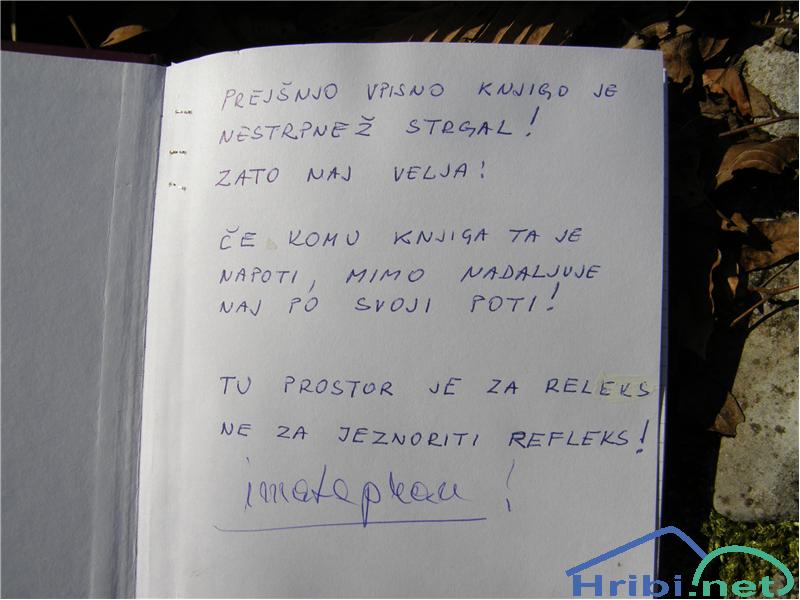 PREJŠNJO VPISNO KNJIGO JE
NESTRPNEŽ STRGAL!
ZATO NAJ VELJA!
ČE KOMU KNJIGA TA JE
NAPOTI, MIMO NADALJUJE
NAJ PO SVOJI POTI!
TU PROSTOR JE ZA RELEKS
NE ZA JEZNORITI REFLEKS!
imate prav!
Hribi.net